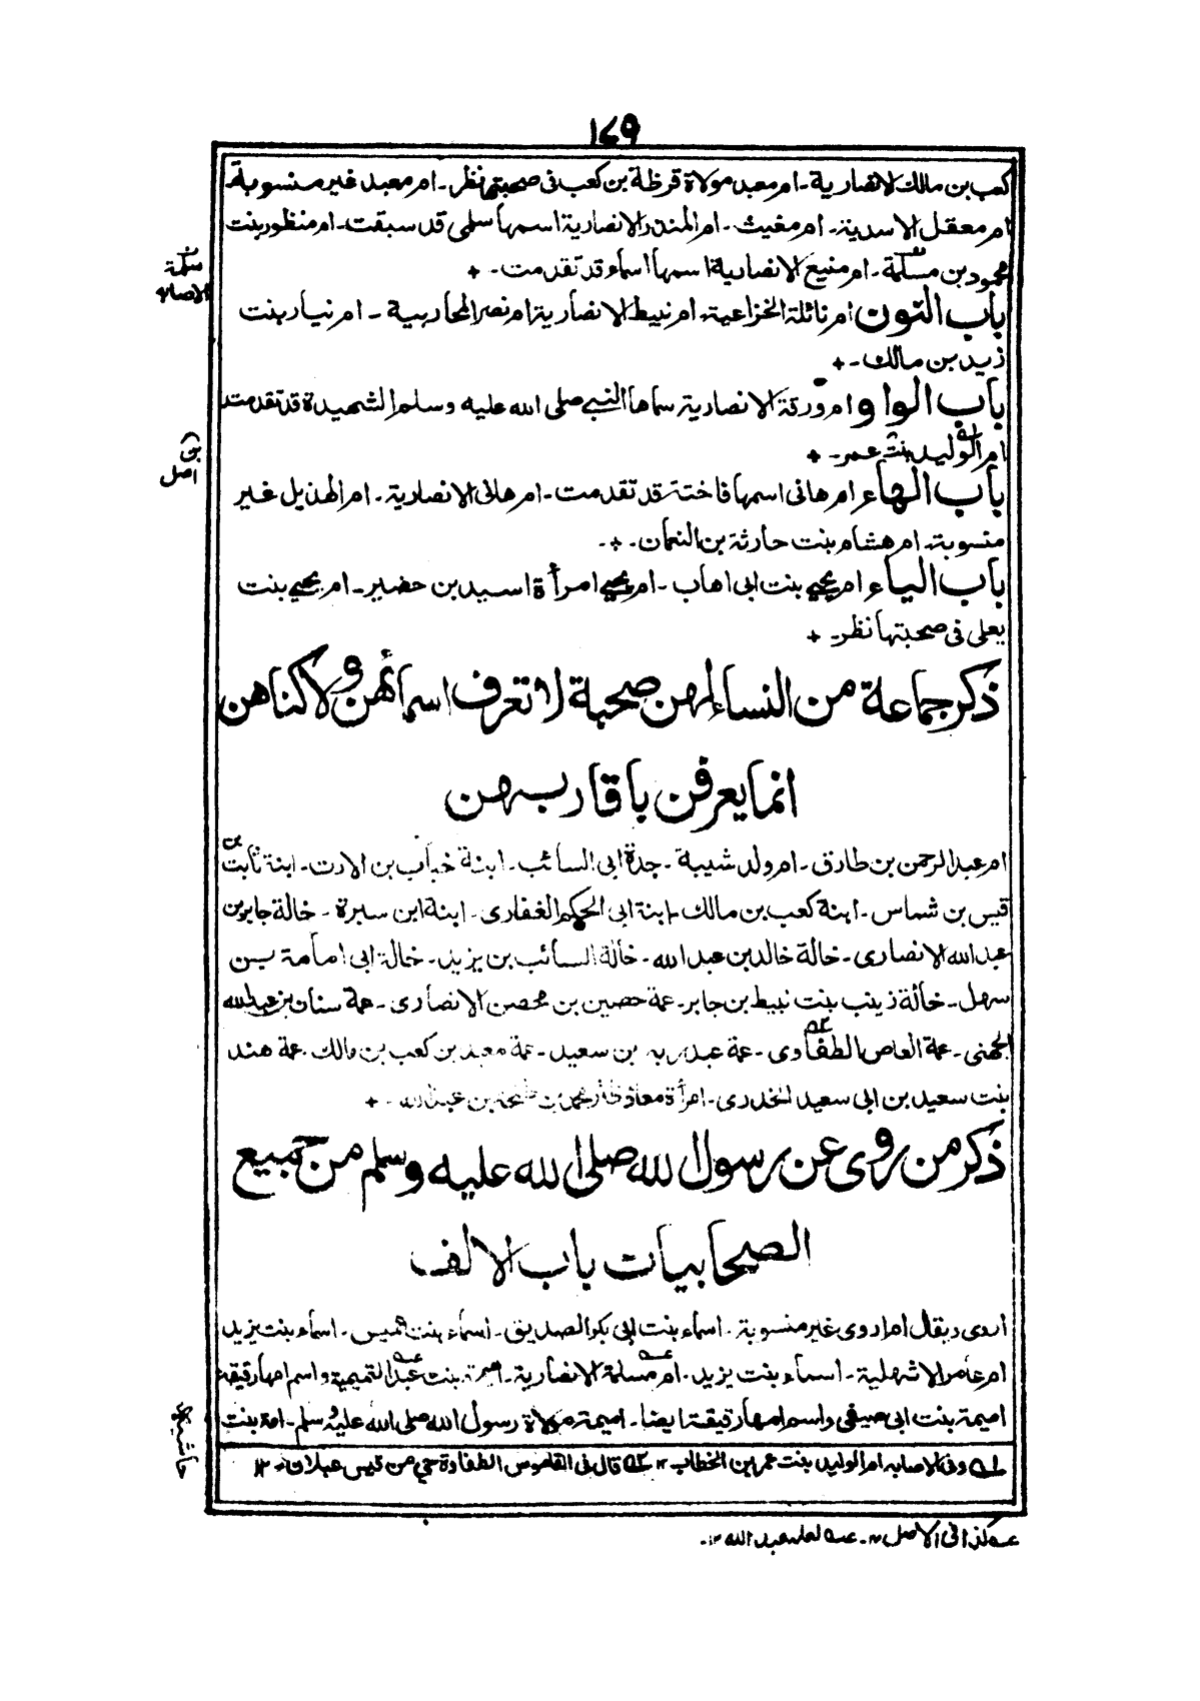 ١٧٩
كعب بن مالك الانصارية۔ ام معبد مولاة قرظة بن كعب فى صحبتها نظر۔ ام معبد غير منسوبة۔
ام معقل الاسدية۔ ام مغيث۔ ام المنذر الانصارية اسمها سلمى قد سبقت۔ ام منظور بنت
محمود بن مسلمة۔ ام منيع الانصارية اسمها اسماء قد تقدمت۔
باب النون ام نائلة الخزاعية۔ ام نبيط الانصارية ام نصر المحاربية ۔ ام نيار بنت
زيد بن مالك۔
باب الواو ام ورقة الانصارية سماها النبي صلى الله عليه وسلم الشهيدة قد تقدمت
ام الوليد بنت عمر۔
باب الهاء ام هانى اسمها فاختة قد تقدمت۔ ام هانى الانصارية۔ ام الهذيل غير
منسوبة۔ ام هشام بنت حارثة بن النعمان۔
باب الياء ام يحيي بنت ابى اهاب ۔ ام يحيي امرأة اسيد بن حضير۔ ام يحيي بنت
يعلى فى صحبتها نظر۔
ذكر جماعة من النساء لهن صحبة لا تعرف اسمائهن ولا كناهن
انما يعرفن باقاربهن
ام عبد الرحمن بن طارق۔ ام ولد شيبة ۔ جدة ابى السائب۔ ابنة خباب بن الارت۔ ابنة ثابت بن
قيس بن شماس۔ ابنة كعب بن مالك۔ ابنة ابى الحكم الغفارى۔ ابنة ابن سبرة ۔ خالة جابر بن
عبد الله الانصارى۔ خالة خالد بن عبد الله ۔ خالة السائب بن يزيد۔ خالة ابى امامة بن
سهل۔ خالة زينب بنت نبيط بن جابر۔ عمة حصين بن محصن الانصارى۔ عمة سنان بن عبد الله
الجهنى۔ عمة العاص الطفاوى۔ عمة عبد ربه بن سعيد۔ عمة معبد بن كعب بن مالك۔ عمة هند
بنت سعيد بن ابى سعيد الخدرى۔ امرأة معاذ ظئر محمد بن طلحة بن عبد الله۔
ذكر من روى عن رسول الله صلى الله عليه وسلم من جميع
الصحابيات باب الالف
اروى ويقال ام اروى غير منسوبة۔ اسماء بنت ابى بكر الصديق۔ اسماء بنت عميس۔ اسماء بنت يزيد
ام عامر الاشهلية۔ اسماء بنت يزيد۔ ام مسلمة الانصارية۔ اميمة بنت عبد التميمية واسم امها رقيقة
اميمة بنت ابى صيفى واسم امها رقيقة ايضا۔ اميمة مولاة رسول الله صلى الله عليه وسلم۔ امة بنت
له وفى الاصابه ام الوليد بنت عمر بن الخطاب ١٢ ٢ه قال فى القاموس الطفاوة حي من قيس عيلان ١٢
عه كذا فى الاصل ١٢۔ عه لعله عبد الله ١٢۔
مسلمة
الاصابه
بن
اصل